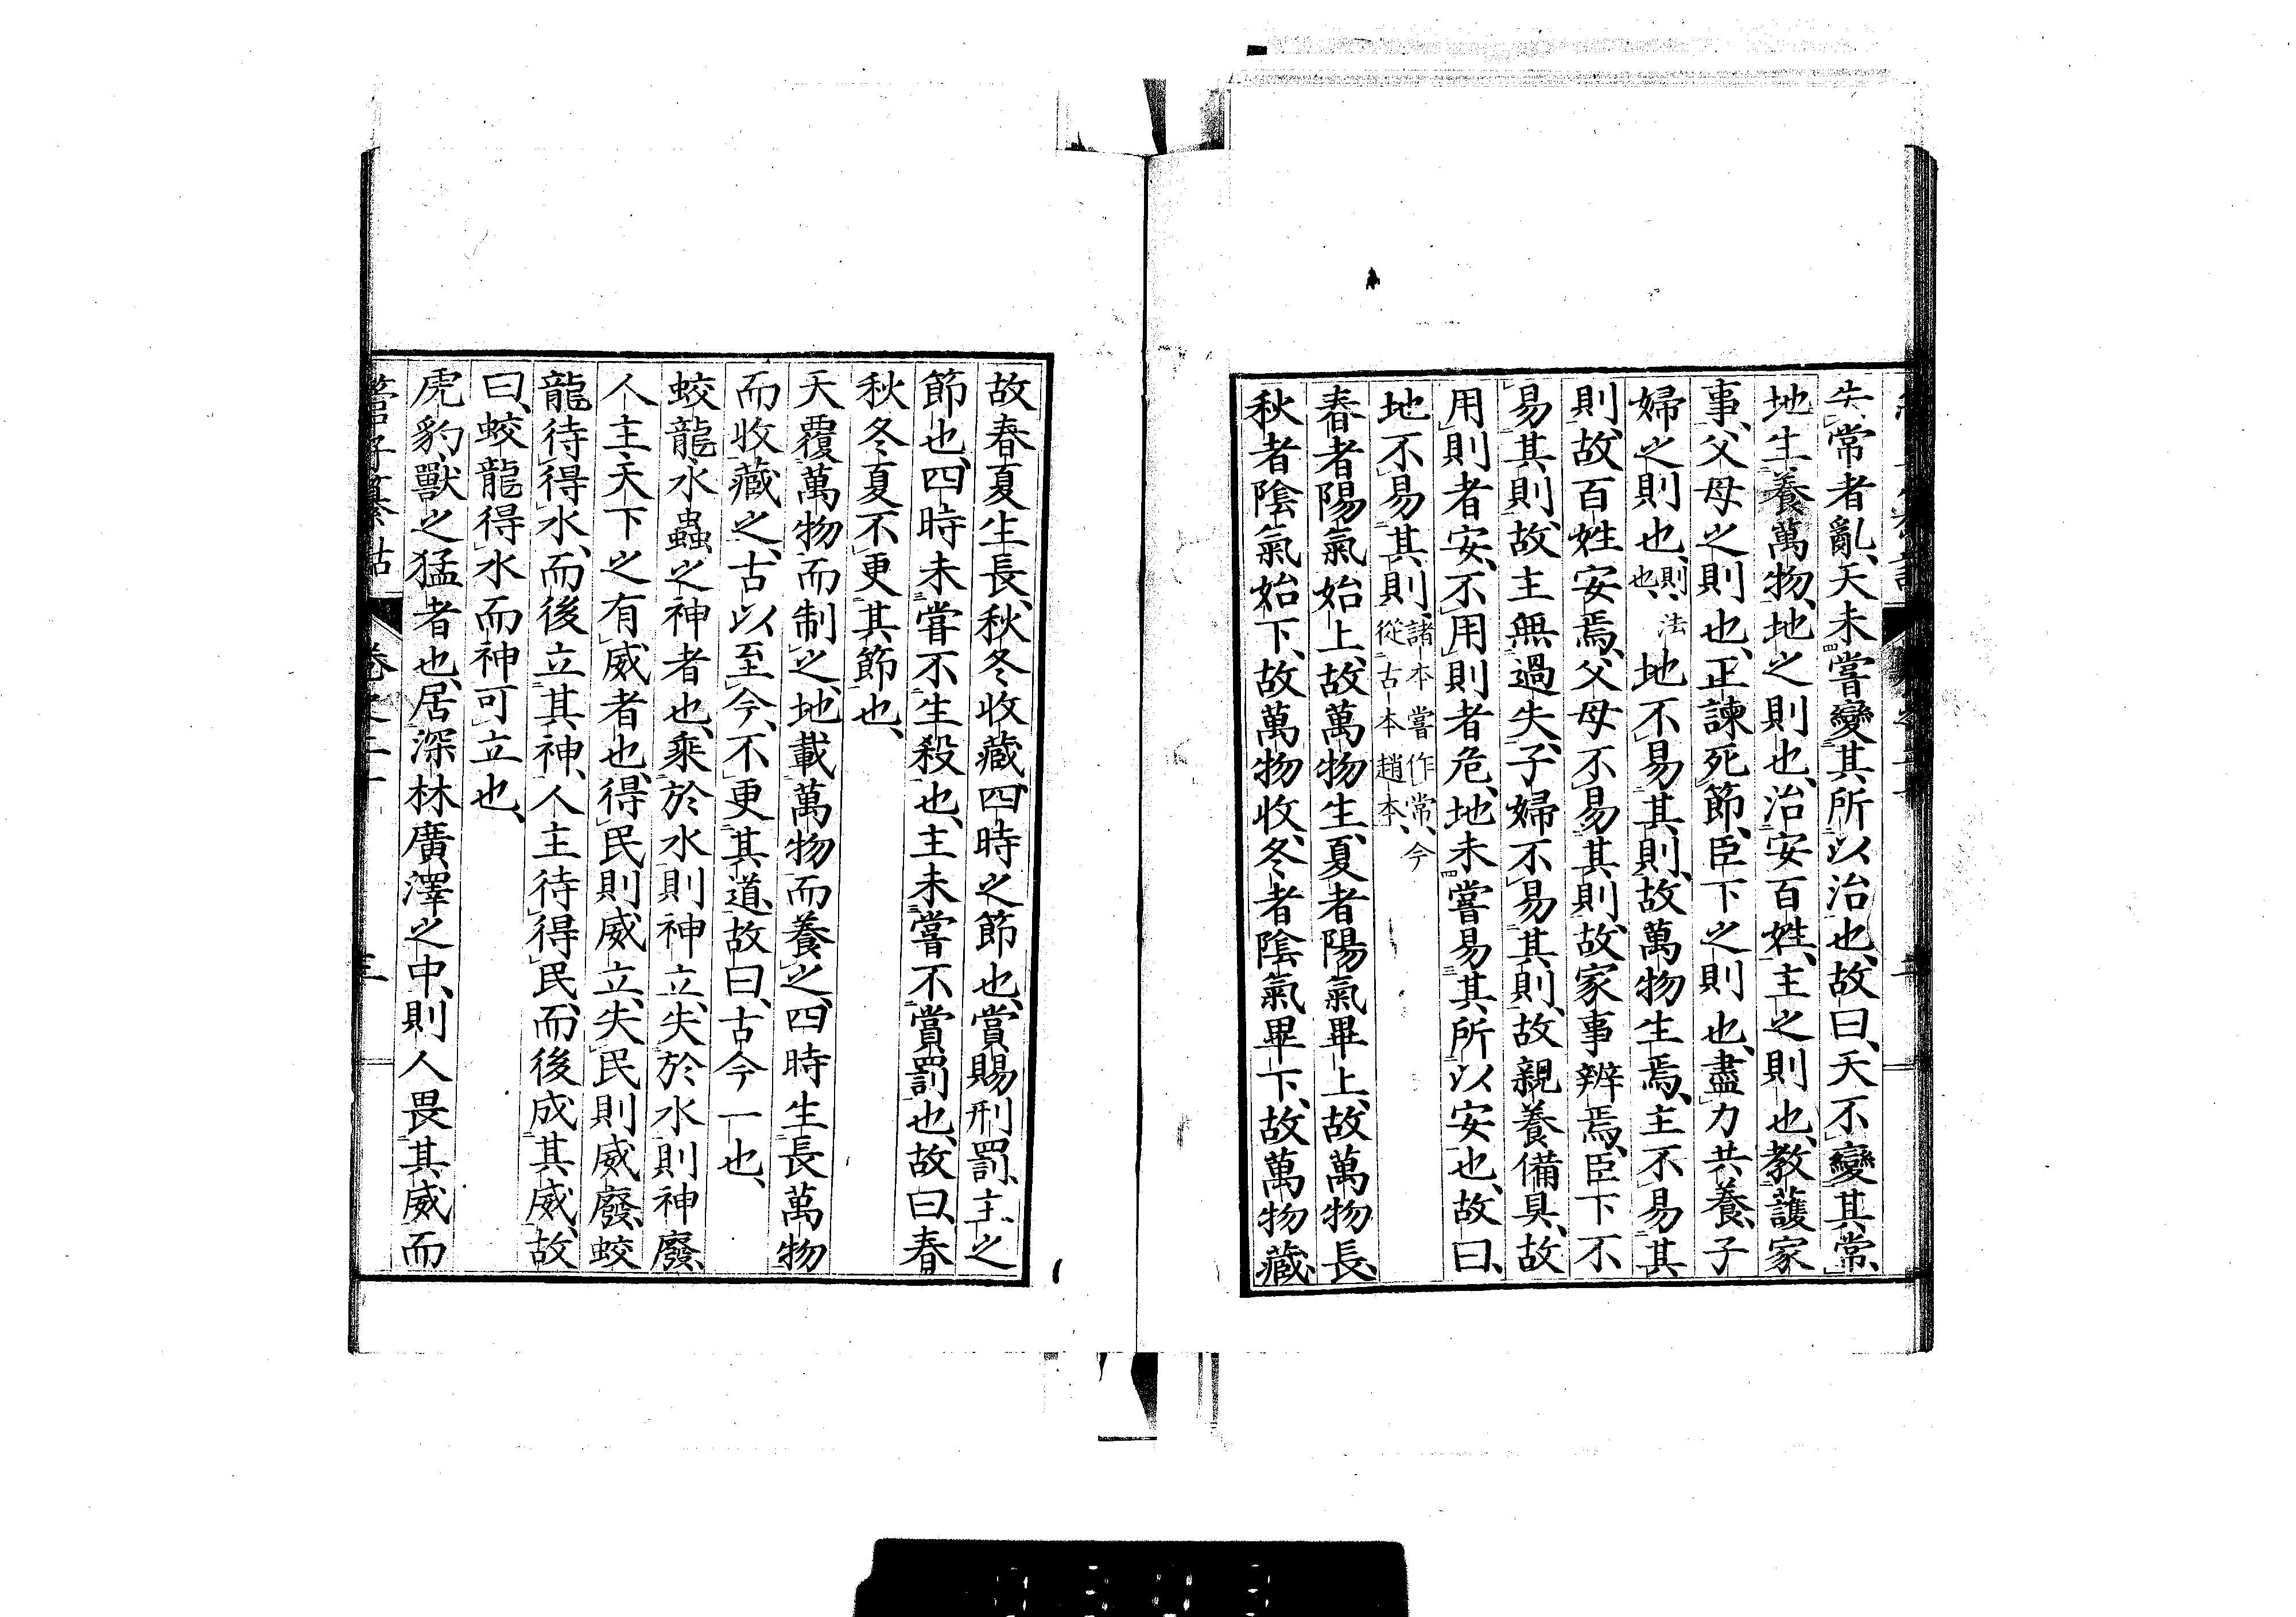 失常者亂、天未嘗變其所以治也、故曰、天不變其常、
地生養萬物、地之則也、治安百姓、主之則也、教護家
事、父母之則也、正諫死節、臣下之則也、盡力共養、子
婦之則也、則、法也、地不易其則、故萬物生焉、主不易其
則、故百姓安焉、父母不易其則、故家事辨焉、臣下不
易其則、故主無過失、子婦不易其則、故親養備具、故
用則者安、不用則者危、地未嘗易其所以安也、故曰、
地不易其則、諸本嘗作常、今從古本趙本、
春者陽氣始上、故萬物生、夏者陽氣畢上、故萬物長、
秋者陰氣始下、故萬物收、冬者陰氣畢下、故萬物藏、
故春夏生長、秋冬收藏、四時之節也、賞賜刑罰、主之
節也、四時未嘗不生殺也、主未嘗不賞罰也、故曰、春
秋冬夏不更其節也、
天覆萬物而制之、地載萬物而養之、四時生長萬物
而收藏之、古以至今、不更其道、故曰、古今一也、
蛟龍水蟲之神者也、乘於水則神立、失於水則神廢、
人主天下之有威者也、得民則威立、失民則威廢、蛟
龍待得水、而後立其神、人主待得民、而後成其威、故
曰、蛟龍得水而神可立也、
虎豹獸之猛者也、居深林廣澤之中、則人畏其威而